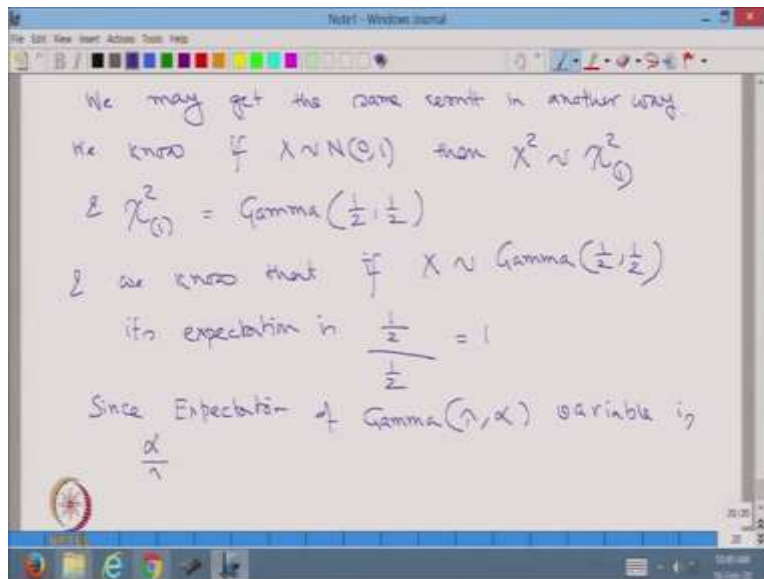 Note1 - Windows Journal
File Edit View Insert Actions Tools Help
We may get the same result in another way.
We know if X ~ N(0,1) then X² ~ χ²(1)
& χ²(1) = Gamma(1/2, 1/2)
& we know that if X ~ Gamma(1/2, 1/2)
its expectation is (1/2)/(1/2) = 1
Since Expectation of Gamma(λ, α) variable is
α/λ